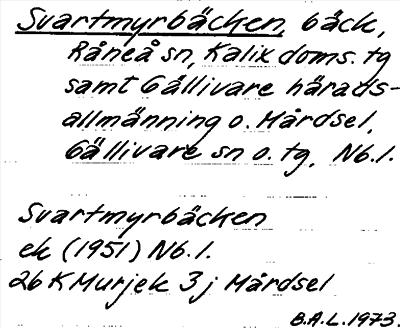 Svartmyrbäcken, bäck,
Råneå sn, Kalix doms. tg
samt Gällivare härads-
allmänning o. Mårdsel,
Gällivare sn o. tg, Nb. l.
Svartmyrbäcken
ek (1951) Nb. l.
26 K Murjek 3 j Mårdsel
B.A.L. 1973.